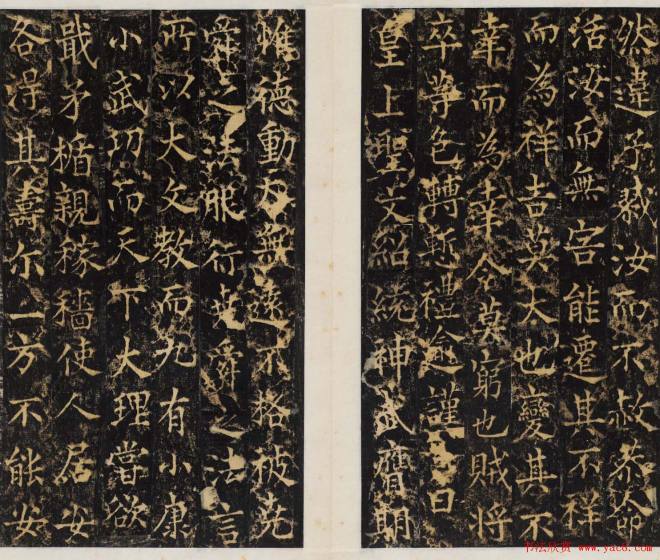 然違予裁汝而不赦恭
活汝而無害能遷其不祥
而為祥吉莫大也變其不
幸而為幸令莫窮也賊將
卒等色轉慙禮逾謹曰
皇上聖文紹統神武膺期
惟德動天無遠不格被堯
舜之法服行堯舜之法言
所以大文教而九有小康
小武功而天下大理嘗欲
戢矛楯親稼穡使人居安
各得其壽尔一方不能安
书法欣赏 www.yac8.com